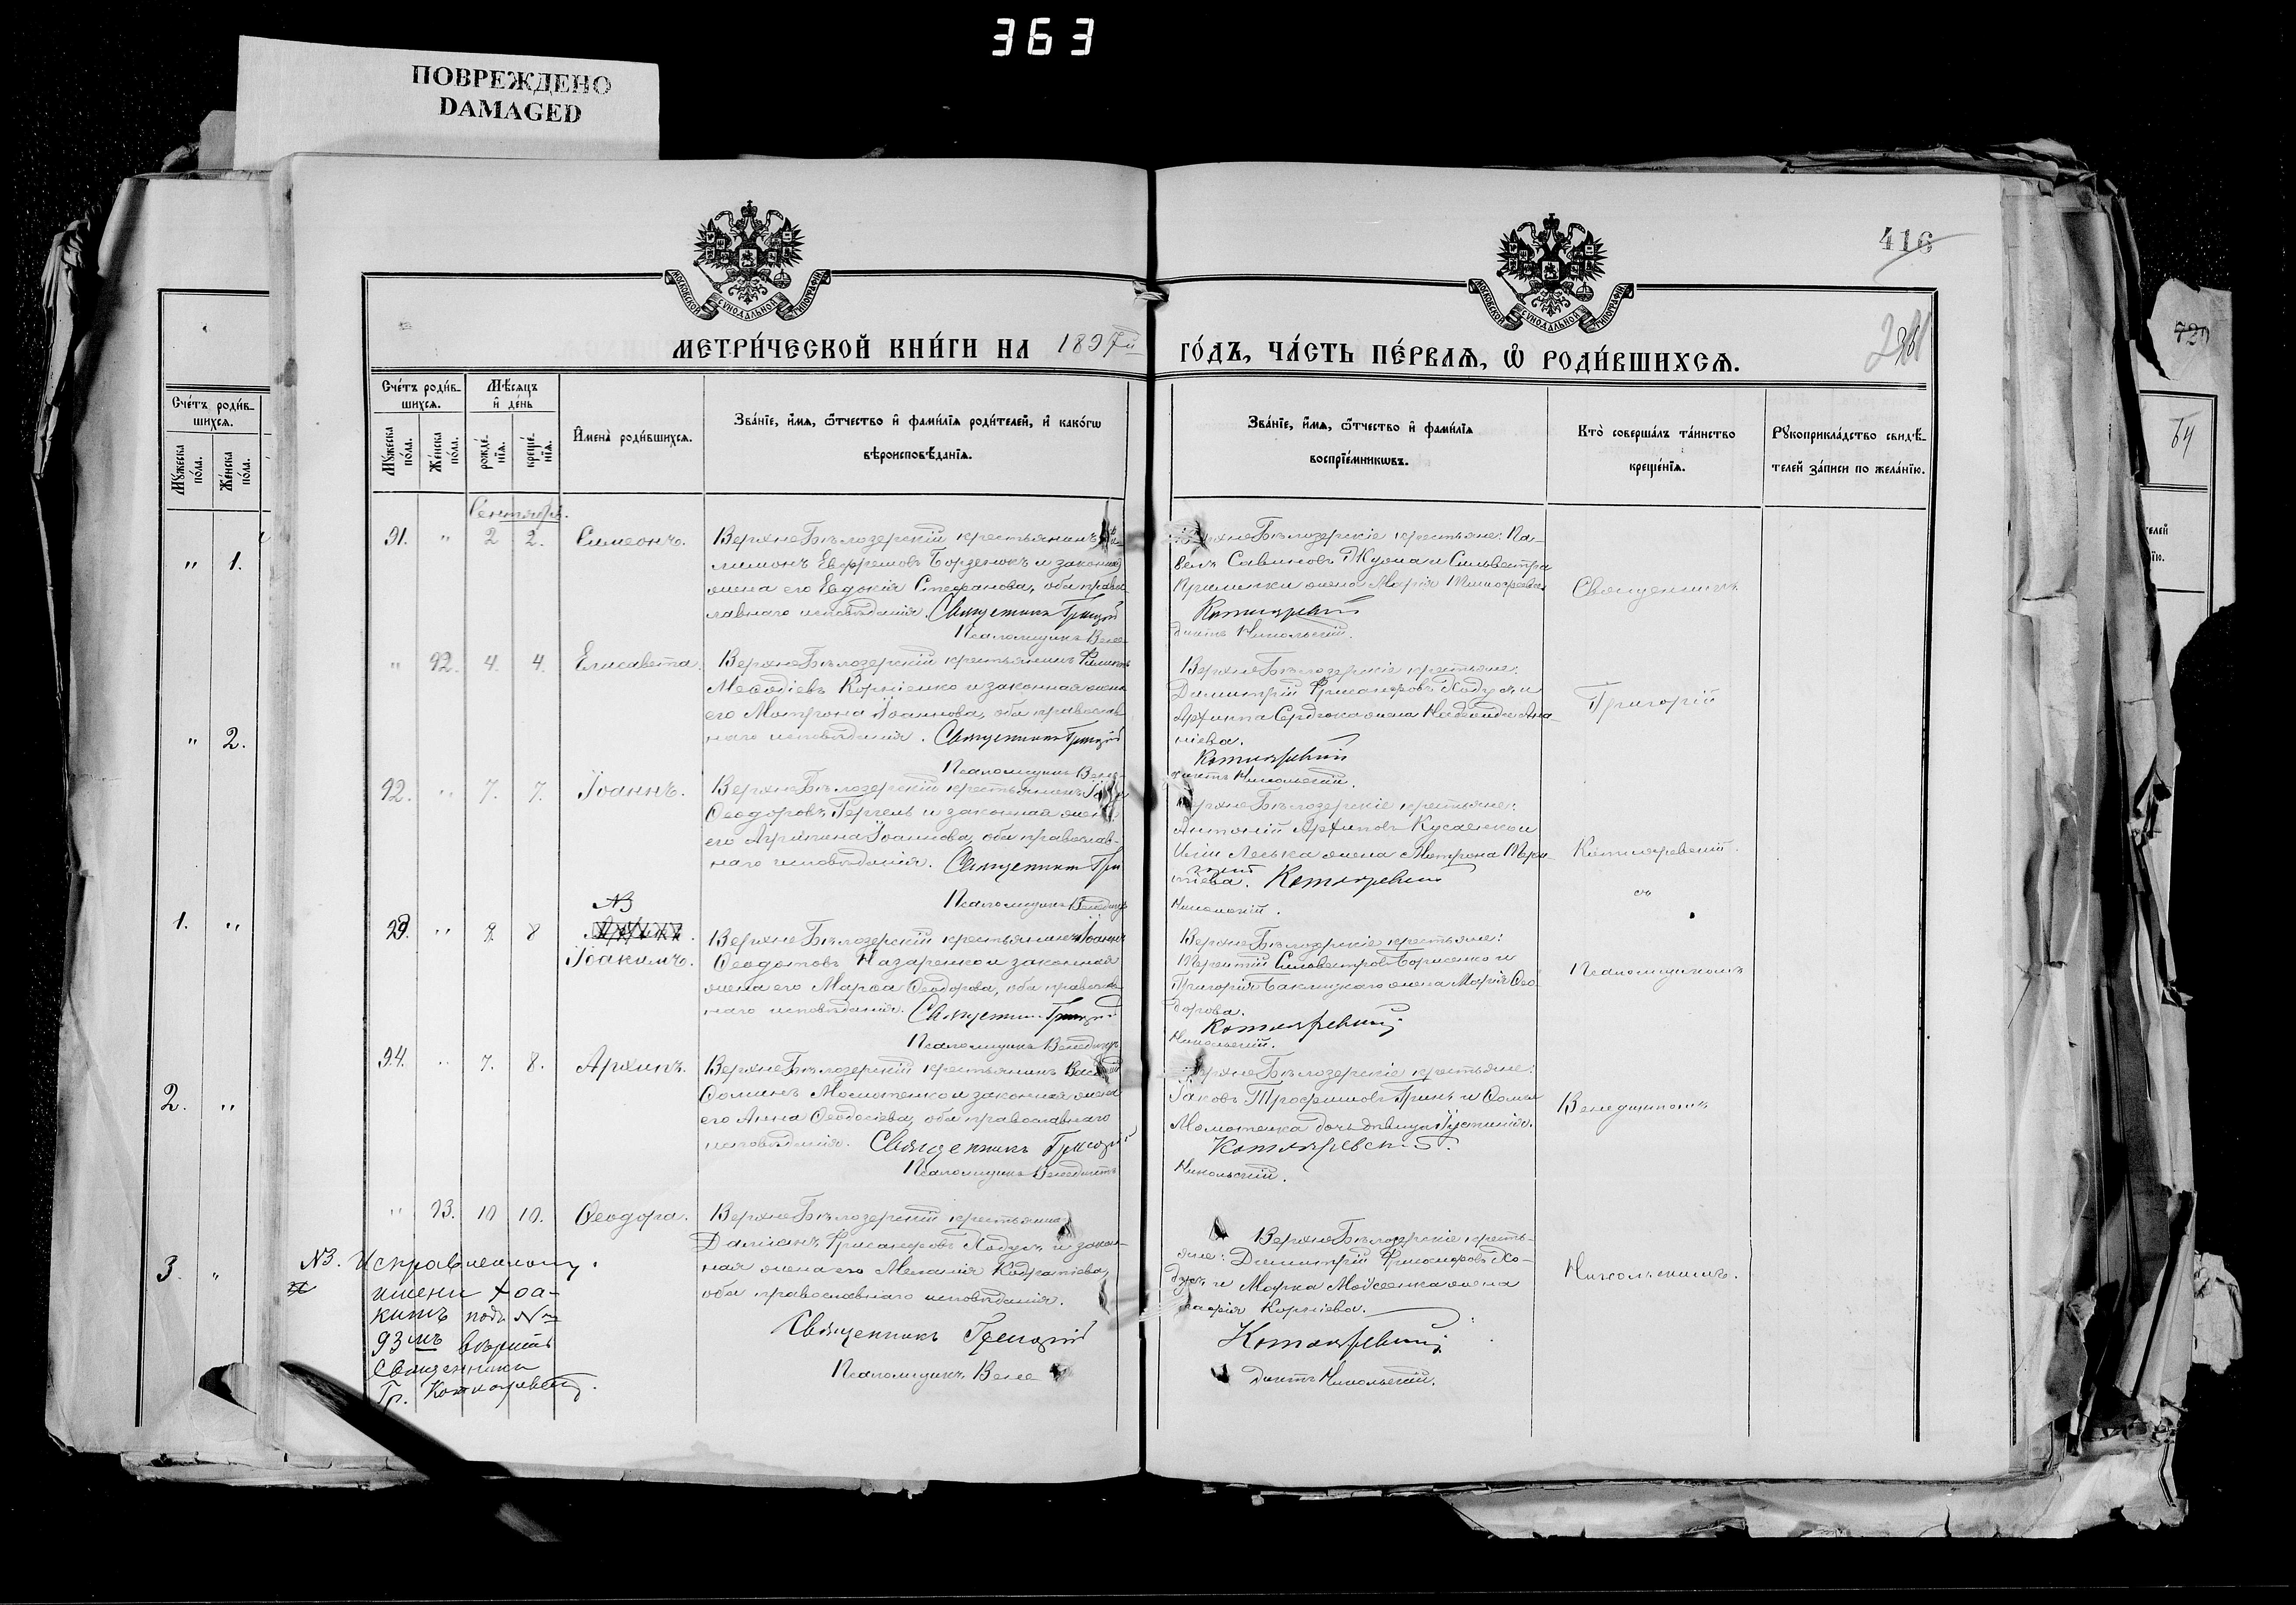 363
ПОВРЕЖДЕНО
DAMAGED
416
МОСКОВСКОЙ СУНОДАЛЬНОЙ ТИПОГРАФІИ
МОСКОВСКОЙ СУНОДАЛЬНОЙ ТИПОГРАФІИ
МЕТРИ́ЧЕСКОЙ КНИ́ГИ НА 1897й
ГО́ДЪ, ЧА́СТЬ ПЕ́РВАѦ, Ѿ РОДИ́ВШИХСѦ.
Сче́тъ роди́в-
шихсѧ.
Мꙋ́жеска
по́ла.
Же́нска
по́ла.
Мѣ́сѧцъ
и҆ де́нь
рожде́-
нїѧ.
креще́-
нїѧ.
И҆мена̀ роди́вшихсѧ.
Зва́нїе, и҆́мѧ, ѻ҆́тчество и҆ фами́лїѧ роди́телей, и҆ како́гѡ
вѣроисповѣ́данїѧ.
Зва́нїе, и҆́мѧ, ѻ҆́тчество и҆ фами́лїѧ
воспрїе́мникѡвъ.
Кто̀ соверша́лъ та́инство
креще́нїѧ.
Рꙋкоприкла́дство свидѣ́-
телей за́писи по жела́нїю.
Сентябрь.
91. " 2 2. Симеонъ.
ВерхнеБѣлозерскій крестьянинъ
лимонъ Евфремовъ Борденюкъ и законная
жена его Евдокія Стефанова, оба правос
лавнаго исповѣданія. Священникъ Григорій
Псаломщикъ Вене
ВерхнеБѣлозерскіе крестьяне: Па-
велъ Савиновъ и Сильвестра
жена Марія Тимофеева
Котляревскій
диктъ Никольскій.
Священникъ
" 92. 4. 4. Елисавета.
ВерхнеБѣлозерскій крестьянинъ Филиппъ
Меѳодіевъ Корніенко и законная жена
его Матрона Іоаннова, оба православ
наго исповѣданія. Священникъ Григорій
Псаломщикъ Вене-
ВерхнеБѣлозерскіе крестьяне:
Димитрій Никаноровъ Ходусъ и
Архипа Сердюка жена Надежда Ана-
ніева.
Котляревскій
диктъ Никольскій.
Григорій
92. " 7. 7. Іоаннъ.
ВерхнеБѣлозерскій крестьянинъ
Ѳеодоровъ Гергель и законная жена
его Агрипина Іоаннова, оба православ-
наго исповѣданія. Священникъ Гри
Псаломщикъ Венедиктъ
ВерхнеБѣлозерскіе крестьяне:
Антоній Архиповъ Кусаенко и
Иліи Леська жена Матрона Тере
нтіева. горій Котляревскій
Никольскій.
Котляревскій.
съ
NB
93. " 8 8
Іоакимъ.
ВерхнеБѣлозерскій крестьянинъ Іоаннъ
Ѳеодотовъ Назаренко и законная
жена его Марѳа Ѳеодорова, оба православ
наго исповѣданія. Священникъ Григорій
Псаломщикъ Венедиктъ
ВерхнеБѣлозерскіе крестьяне:
Терентій Сильвестровъ Борисенко и
Григорія Баклицкаго жена Марія Ѳео-
дорова.
Котляревскій
Никольскій.
Псаломщикомъ
94. " 7. 8. Архипъ.
ВерхнеБѣлозерскій крестьянинъ Василій
Ѳоминъ Момотенко и законная жена
его Анна Ѳеодосіева, оба православнаго
исповѣданія. Священникъ Григорій
Псаломщикъ Венедиктъ
ВерхнеБѣлозерскіе крестьяне:
Іаковъ Трофимовъ Гринь и Ѳомы
Момотенка дочь дѣвица Іустинія.
Котляревскій.
Никольскій.
Венедиктомъ
" 93. 10 10. Ѳеодора.
ВерхнеБѣлозерскій крестьянинъ
Даміанъ Никаноровъ Ходусъ и закон-
ная жена его Меланія Кодратіева,
оба православнаго исповѣданія.
Священникъ Григорій
Псаломщикъ Вене
ВерхнеБѣлозерскіе кресть-
яне: Димитрій Никаноровъ Хо-
дусъ и Марка Мойсеенка жена
Марія Корніева.
Котляревскій
диктъ Никольскій.
Никольскимъ.
NB. Исправленному
имени Іоа-
кимъ подъ №
93мъ вѣрить
Священникъ
Гр. Котляревскій.
Сче́тъ роди́в-
шихсѧ.
Мꙋ́жеска
по́ла.
Же́нска
по́ла.
" 1.
" 2.
1. "
2. "
3. "